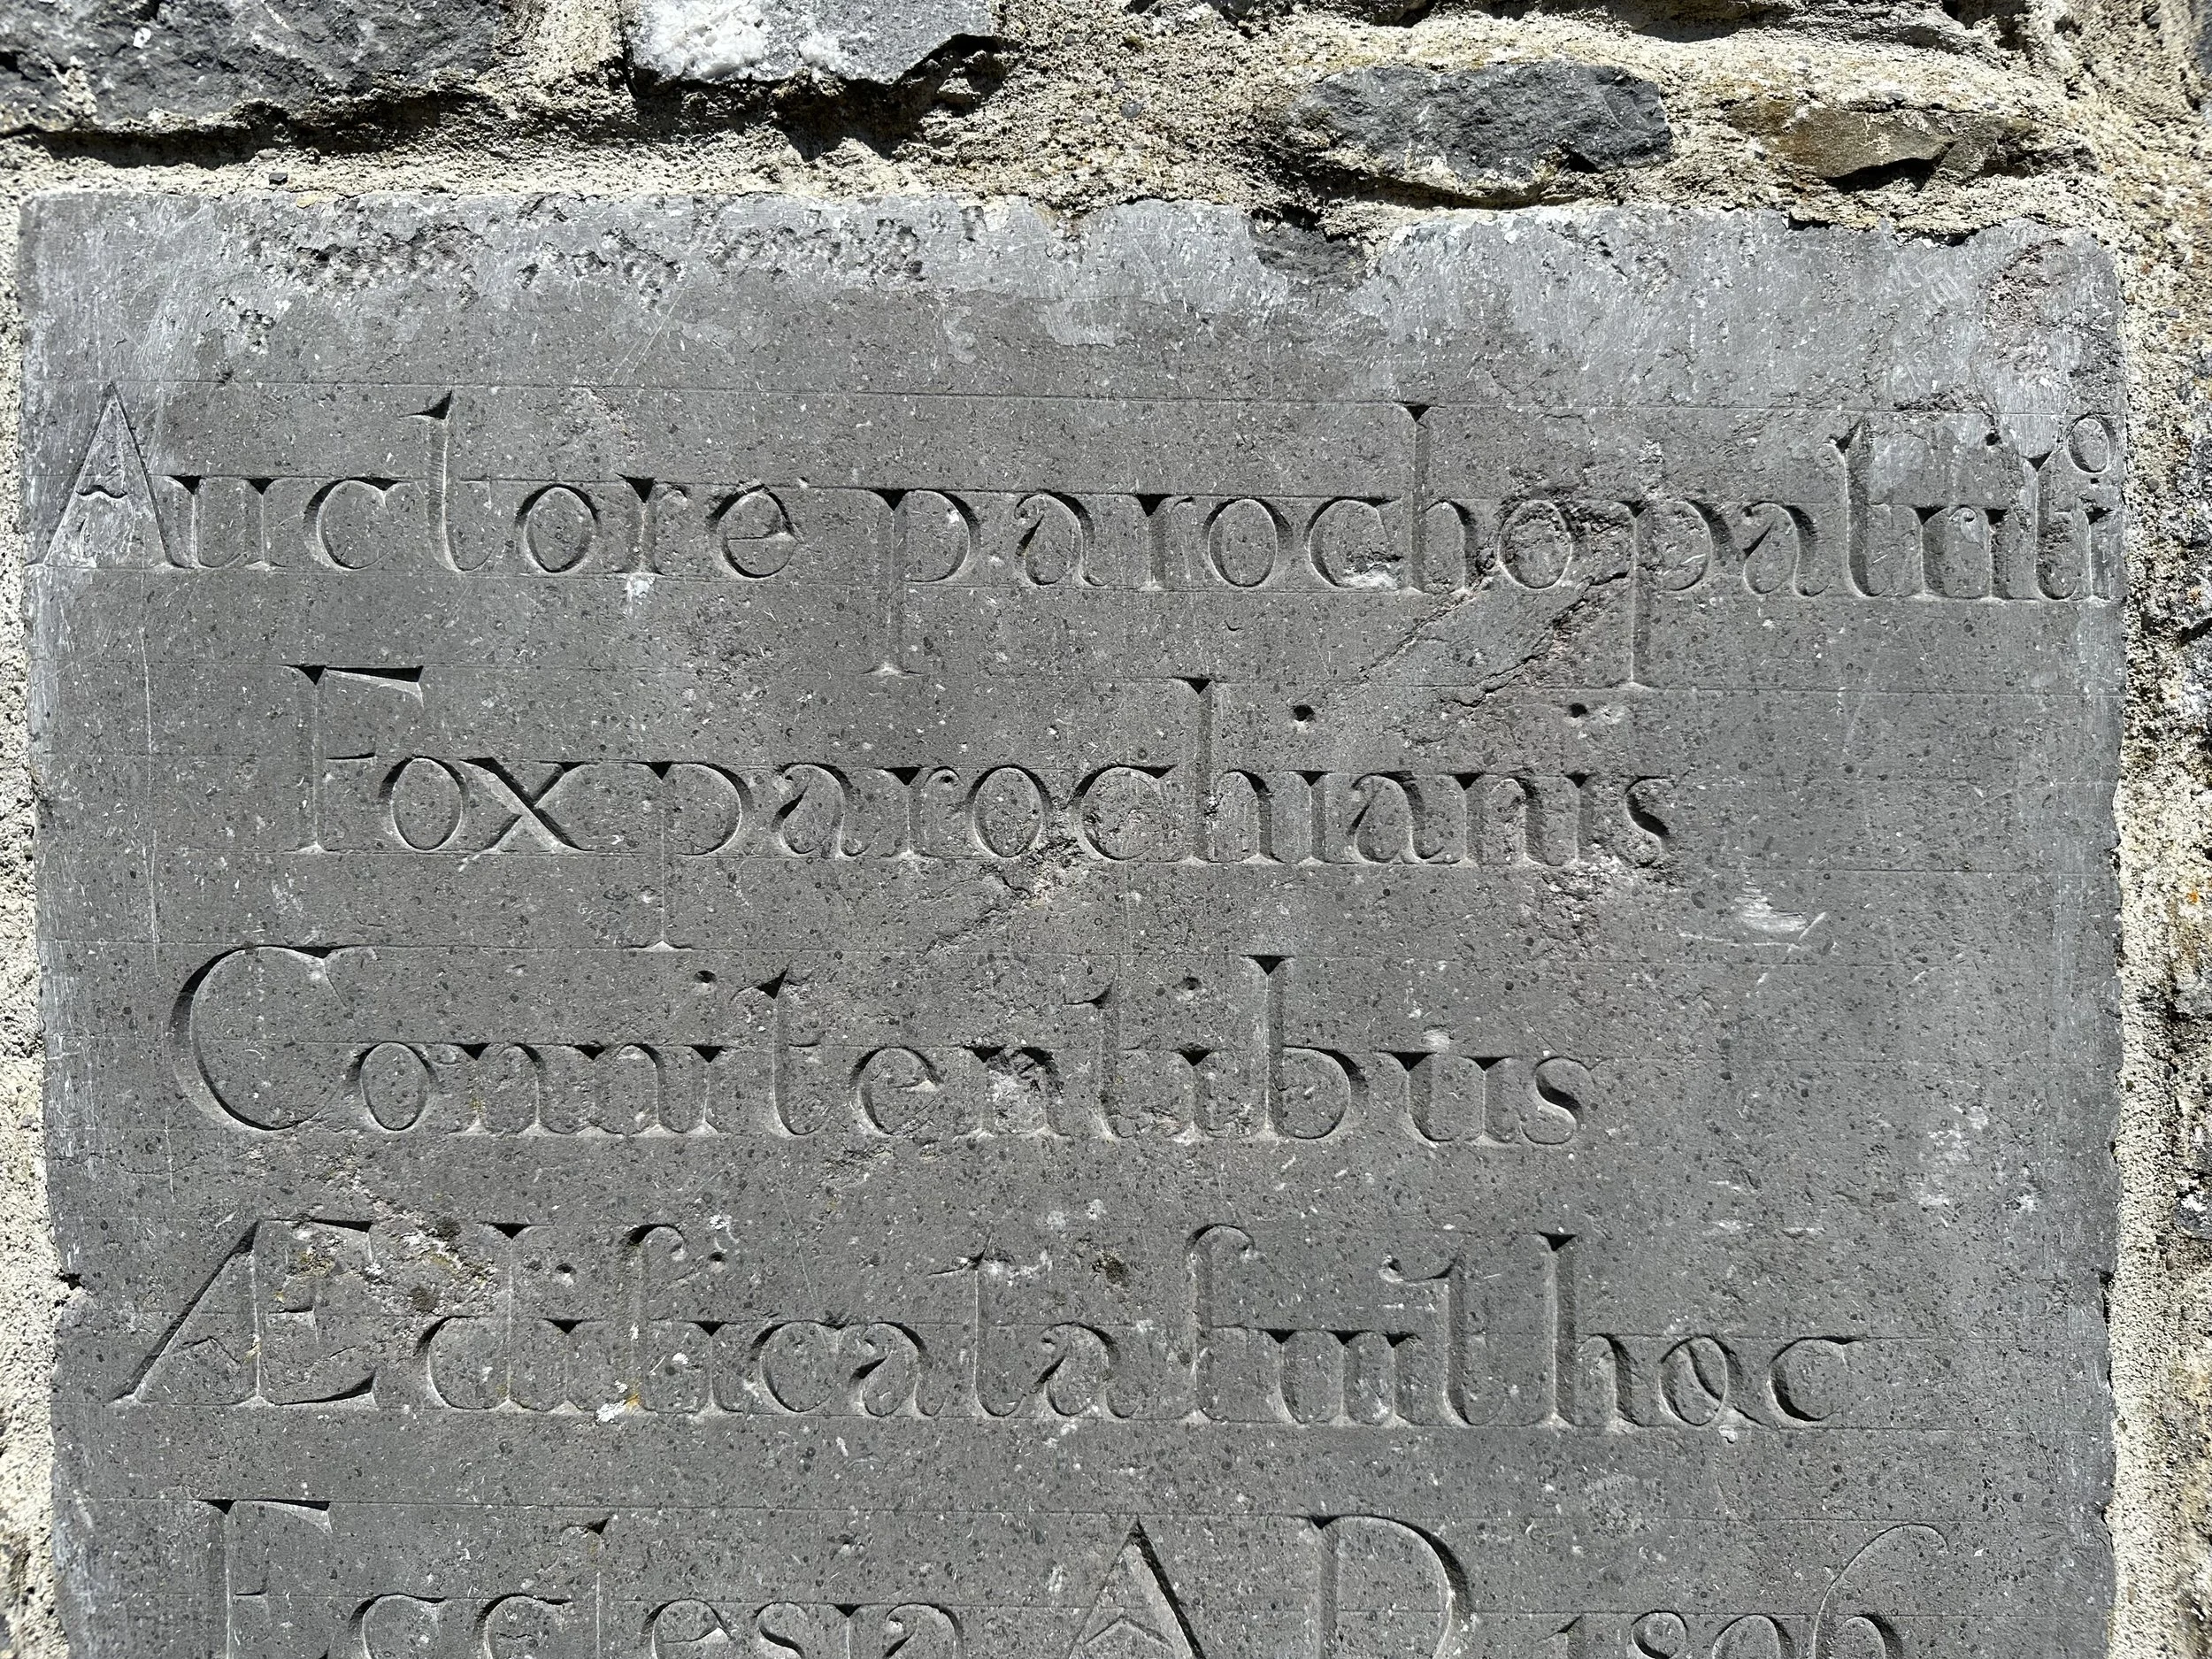 Auctore parocho patritiº
Fox parochianis
Comitentibus
Ædificata fuit hœc
Ecclesia A D 1806